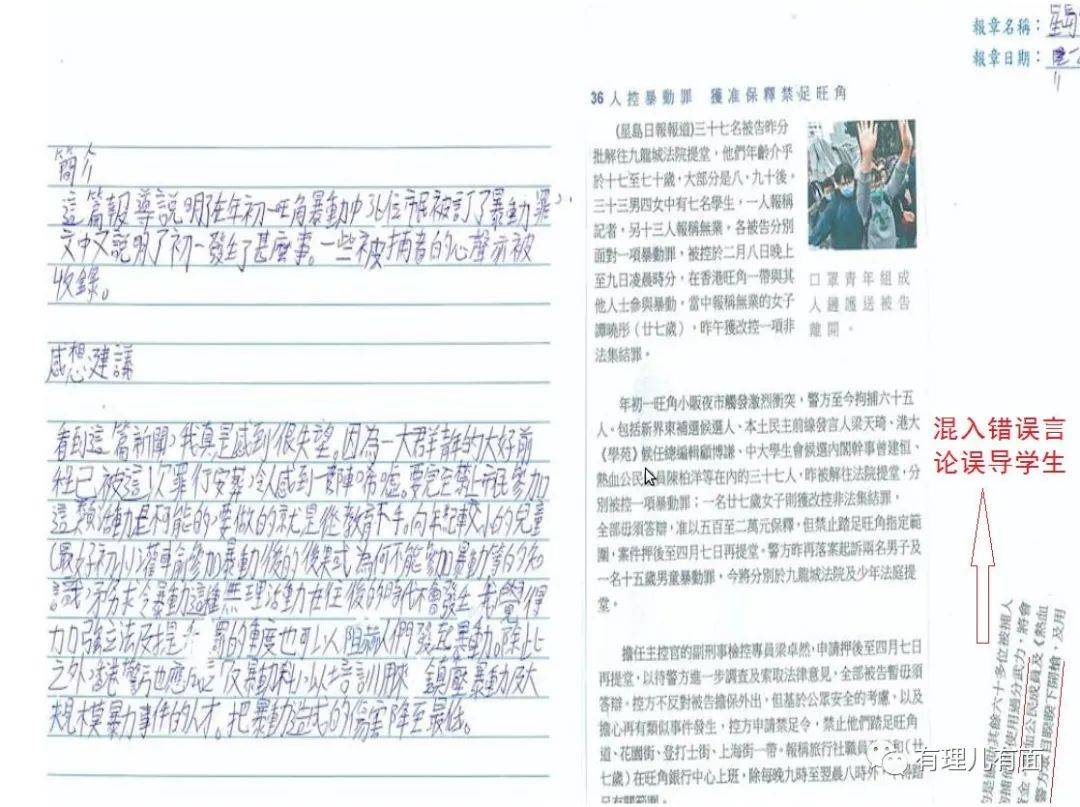 簡介
這篇報導說明了在年初一旺角暴動中36位市民被訂了暴動罪，
文中又說明了初一發生了甚麼事。一些被捕者的心聲亦被
收錄。
感想建議
看到這篇新聞，我真是感到很失望。因為一大群青年的大好前
程已被這次罪行安葬，令人感到一陣唏噓。要完全禁止市民參加
這類活動是不可能的，要做的就是從教育下手，向年紀較小的兒童
(最好初小)灌輸參加暴動後的後果或為何不能參加暴動等的知
識，務求令暴動這種無理活動在往後的時代不會發生。我覺得
加強立法及提升 罰的重度也可以阻嚇人們發起暴動。除此
之外，香港警方也應 設「反暴動科」以培訓用來 鎮壓暴動及大
規模暴力事件的人才。把暴動造成的傷害降至最低。
報章名稱：
報章日期：
36人控暴動罪 獲准保釋禁足旺角
(星島日報報道)三十七名被告昨分
批解往九龍城法院提堂，他們年齡介乎
於十七至七十歲，大部分是八、九十後，
三十三男四女中有七名學生，一人報稱
記者，另十三人報稱無業，各被告分別
面對一項暴動罪，被控於二月八日晚上
至九日凌晨時分，在香港旺角一帶與其
他人士參與暴動，當中報稱無業的女子
譚曉彤（廿七歲），昨午獲改控一項非
法集結罪。
口罩青年組成
人鏈護送被告
離開。
年初一旺角小販夜市觸發激烈衝突，警方至今拘捕六十五
人。包括新界東補選候選人、本土民主前線發言人梁天琦、港大
《學苑》候任總編輯顧博謙、中大學生會候選內閣幹事曾建恒、
熱血公民成員陳柏洋等在內的三十七人，昨被解往法院提堂，分
別被控一項暴動罪；一名廿七歲女子則獲改控非法集結罪，
全部毋須答辯，准以五百至二萬元保釋，但禁止踏足旺角指定範
圍，案件押後至四月七日再提堂。警方昨再落案起訴兩名男子及
一名十五歲男童暴動罪，今將分別於九龍城法院及少年法庭提
堂。
擔任主控官的副刑事檢控專員梁卓然，申請押後至四月七日
再提堂，以待警方進一步調查及索取法律意見，全部被告暫毋須
答辯。控方不反對被告擔保外出，但基於公眾安全的考慮，以及
擔心再有類似事件發生，控方申請禁足令，禁止他們踏足旺角
道、花園街、登打士街、上海街一帶。報稱旅行社職員 和（廿
七歲）在旺角銀行中心上班，除每晚九時至翌晨八時外， 得踏
足有關範圍。
混入错误言
论误导学生
其餘六十多位被捕人
使用過分武力，將會
公民成員及《熱血
警方 目睽睽下開槍，及用
有理儿有面